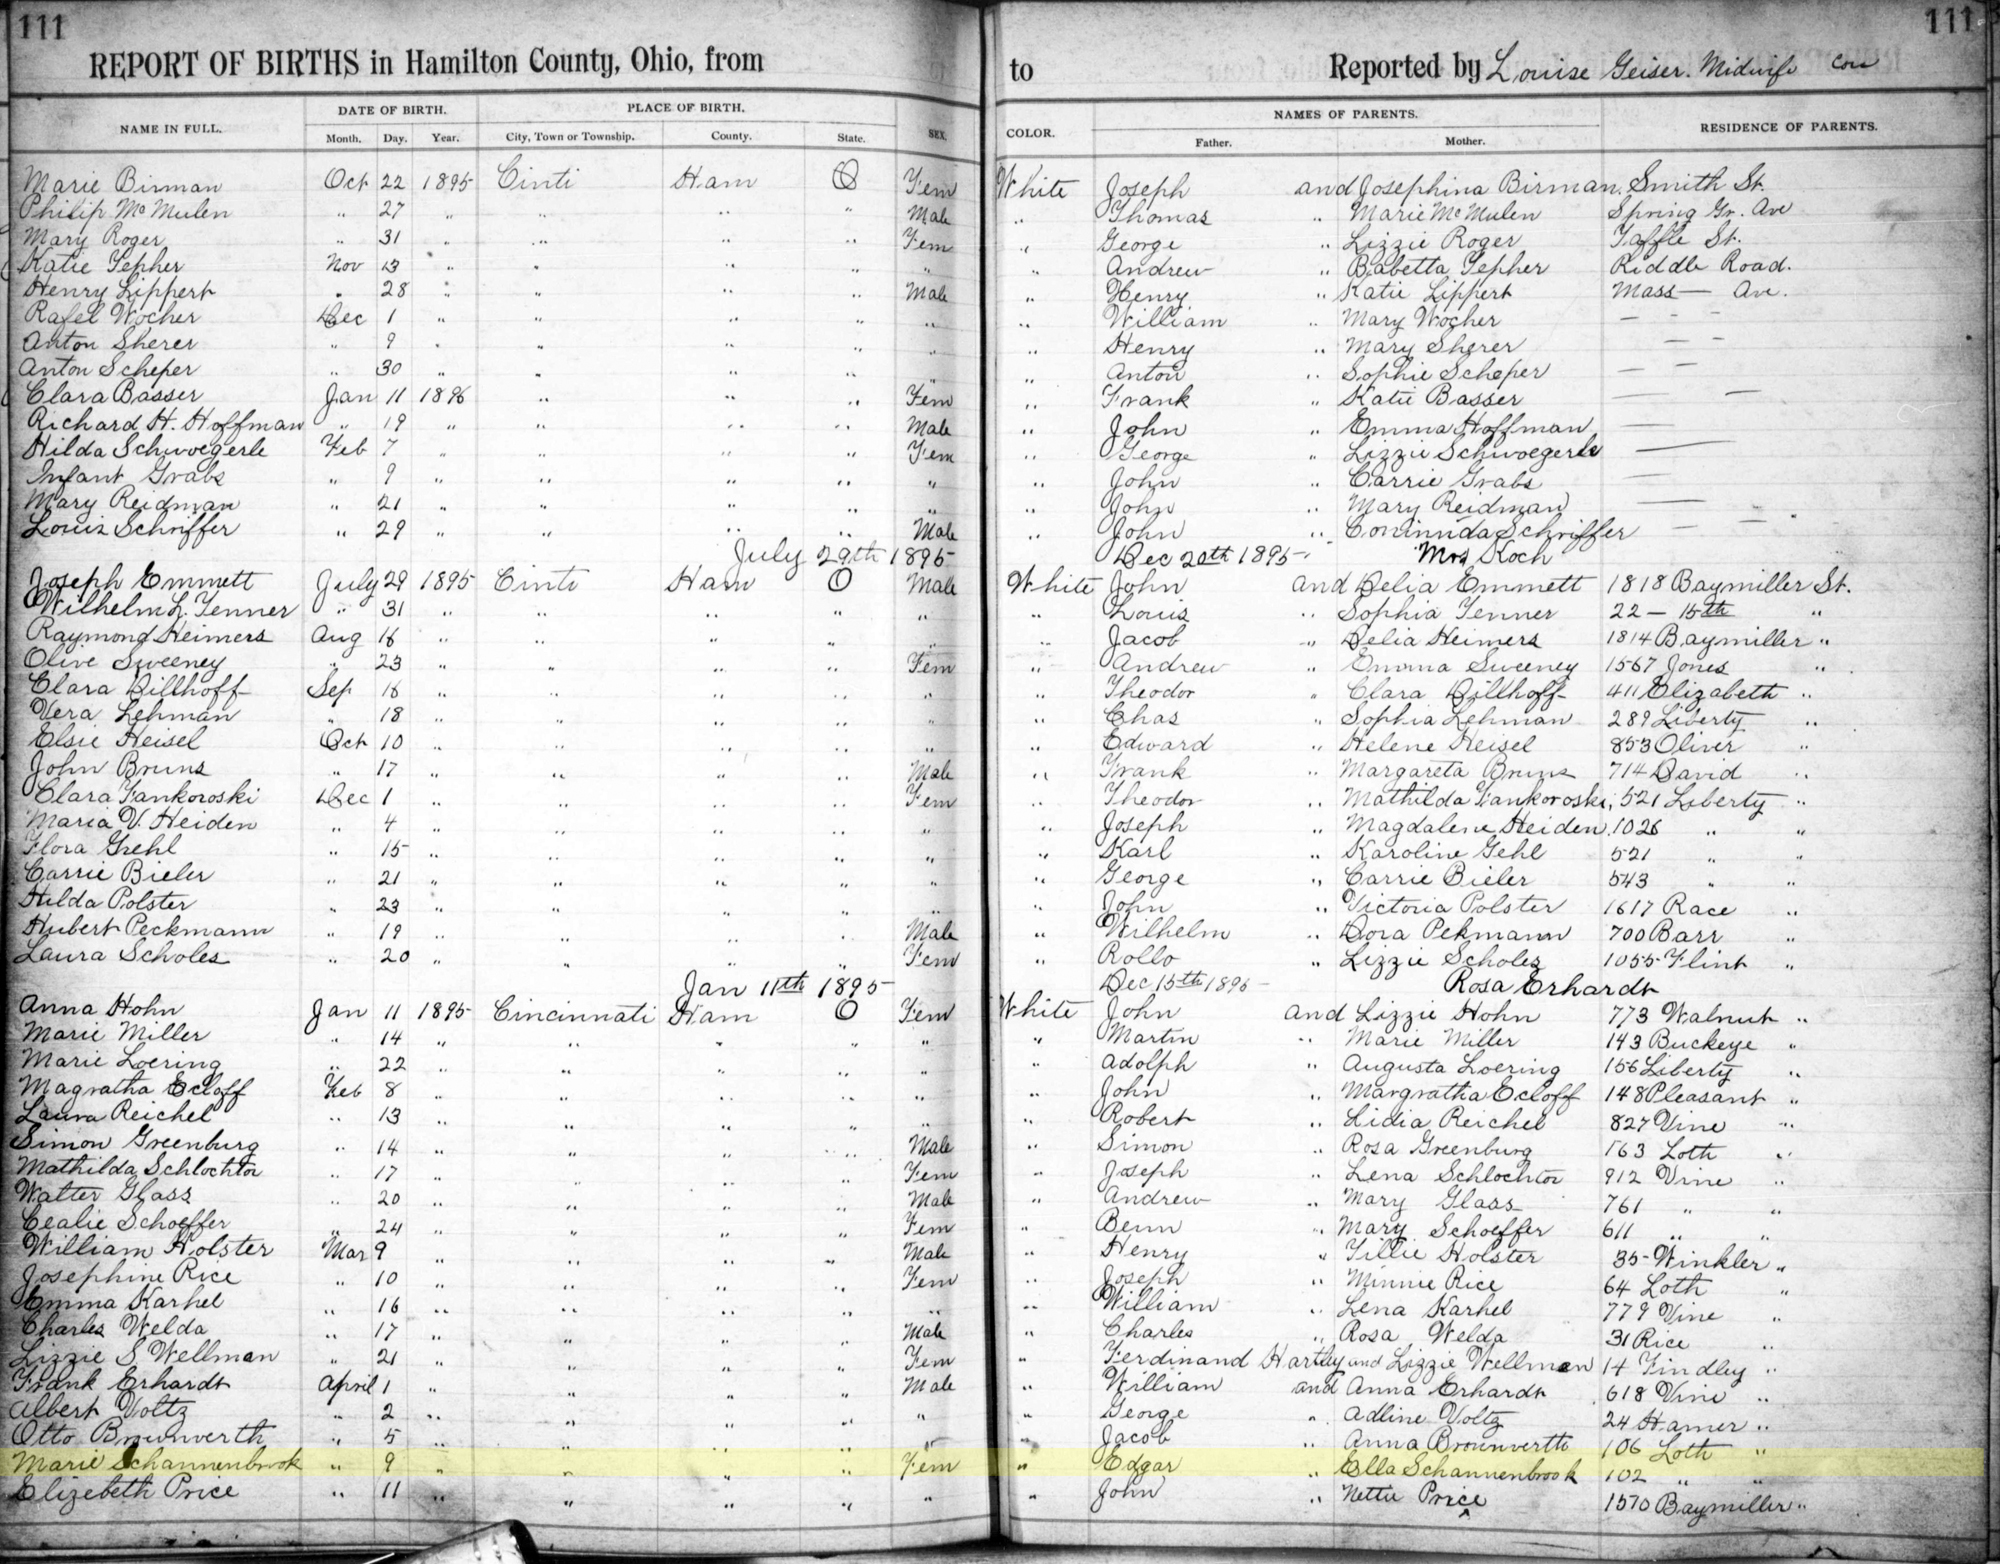 111 111
REPORT OF BIRTHS in Hamilton County, Ohio, from to Reported by Louise Geiser. Midwife Con
NAME IN FULL. DATE OF BIRTH. PLACE OF BIRTH. SEX. COLOR. NAMES OF PARENTS. RESIDENCE OF PARENTS.
Month. Day. Year. City, Town or Township. County. State. Father. Mother.
Marie Birman Oct 22 1895 Cinti Ham O Fem White Joseph and Josephina Birman. Smith St.
Philip McMulen " 27 " " " " Male " Thomas " Marie McMulen Spring Gr. Ave
Mary Roger " 31 " " " " Fem " George " Lizzie Roger Taffle St.
Katie Tepher Nov 13 " " " " " " Andrew " Babetta Tepher Riddle Road.
Henry Lippert " 28 " " " " Male " Henry " Katie Lippert Mass — Ave.
Rafel Wocher Dec 1 " " " " " " William " Mary Wocher — - -
Anton Sherer " 9 " " " " " " Henry " Mary Sherer — - -
Anton Scheper " 30 " " " " " " Anton " Sophie Scheper — —
Clara Basser Jan 11 1896 " " " Fem " Frank " Katie Basser — —
Richard H. Hoffman " 19 " " " " Male " John " Emma Hoffman —
Hilda Schwoegerle Feb 7 " " " " Fem " George " Lizzie Schwoegerle —
Infant Grabs " 9 " " " " " " John " Carrie Grabs —
Mary Reidman " 21 " " " " " " John " Mary Reidman —
Louis Schriffer " 29 " " " " Male " John " Schriffer — —
July 29th 1895 Dec 20th 1895 Mrs Koch
Joseph Emmett July 29 1895 Cinti Ham O Male White John and Delia Emmett 1818 Baymiller St.
Wilhelm L. Tenner " 31 " " " " " " Louis " Sophia Tenner 22 — 15th "
Raymond Heimers Aug 16 " " " " " " Jacob " Delia Heimers 1814 Baymiller "
Olive Sweeney " 23 " " " " Fem " Andrew " Emma Sweeney 1567 Jones "
Clara Dillhoff Sep 16 " " " " " " Theodor " Clara Dillhoff 411 Elizabeth "
Vera Lehman " 18 " " " " " " Chas " Sophia Lehman 289 Liberty "
Elsie Heisel Oct 10 " " " " " " Edward " Helene Heisel 853 Oliver "
John Bruns " 17 " " " " Male " Frank " Margareta Bruns 714 David "
Clara Fankoroski Dec 1 " " " " Fem " Theodor " Mathilda Fankoroski, 521 Liberty "
Maria V. Heiden " 4 " " " " " " Joseph " Magdalene Heiden. 1026 " "
Flora Grehl " 15 " " " " " " Karl " Karoline Gehl 521 " "
Carrie Bieler " 21 " " " " " " George " Carrie Bieler 543 " "
Hilda Polster " 23 " " " " " " John " Victoria Polster 1617 Race "
Hubert Peckmann " 19 " " " " Male " Wilhelm " Dora Pekmann 700 Barr "
Laura Scholes " 20 " " " " Fem " Rollo " Lizzie Scholes 1055 Flint "
Jan 11th 1895 Dec 15th 1895 Rosa Erhardt
Anna Hohn Jan 11 1895 Cincinnati Ham O Fem White John and Lizzie Hohn 773 Walnut "
Marie Miller " 14 " " " " " " Martin " Marie Miller 143 Buckeye "
Marie Loering " 22 " " " " " " Adolph " Augusta Loering 156 Liberty "
Magratha Ecloff Feb 8 " " " " " " John " Margratha Ecloff 148 Pleasant "
Laura Reichel " 13 " " " " " " Robert " Lidia Reichel 827 Vine "
Simon Greenburg " 14 " " " " Male " Simon " Rosa Greenburg 163 Loth "
Mathilda Schlochtor " 17 " " " " Fem " Joseph " Lena Schlochtor 912 Vine "
Walter Glass " 20 " " " " Male " Andrew " Mary Glaas 761 " "
Cealie Schoeffer " 24 " " " " Fem " Benn " Mary Schoeffer 611 " "
William Holster Mar 9 " " " " Male " Henry " Tillie Holster 35 Winkler "
Josephine Rice " 10 " " " " Fem " Joseph " Minnie Rice 64 Loth "
Emma Karhel " 16 " " " " " " William " Lena Karhel 779 Vine "
Charles Welda " 17 " " " " Male " Charles " Rosa Welda 31 Rice "
Lizzie S Wellman " 21 " " " " Fem " Ferdinand Hartley and Lizzie Wellman 14 Findley "
Frank Erhardt April 1 " " " " Male " William and Anna Erhardt 618 Vine "
Albert Voltz " 2 " " " " " " George " Adline Voltz 24 Hamer "
Otto Brounwerth " 5 " " " " " " Jacob " Anna Brounverth 106 Loth "
Marie Schannenbrook " 9 " " " " Fem " Edgar " Ella Schannenbrook 102 " "
Elizebeth Price " 11 " " " " " " John " Nettie Price 1570 Baymiller "